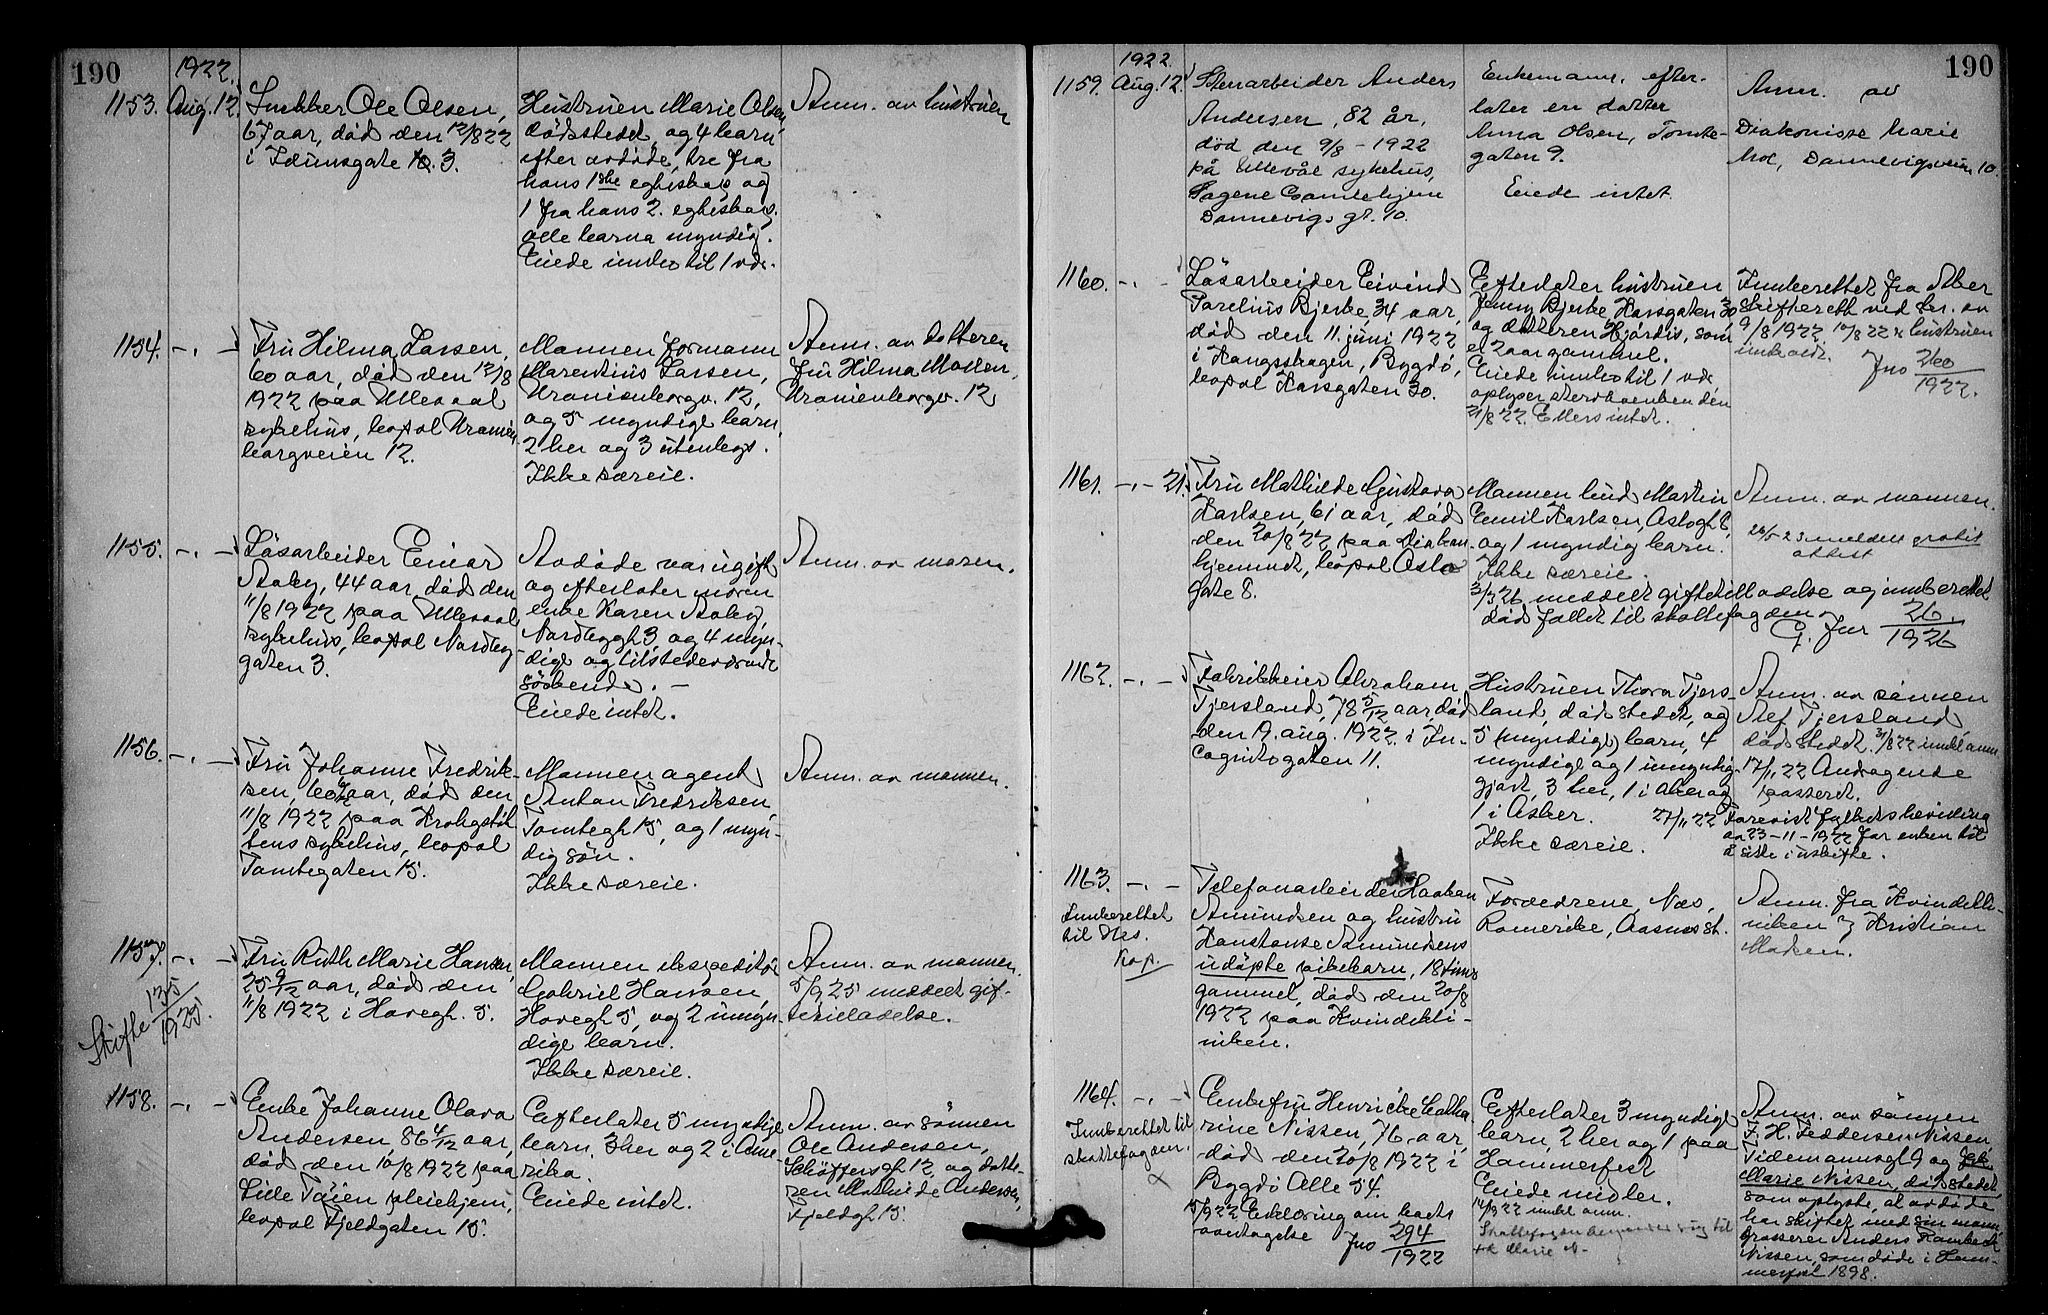 190
1922.
1153. Aug. 12.
Snekker Ole Olsen,
67 aar, død den 12/8 22
i Idunsgate 3.
Hustruen Marie Olsen
dødsstedet, og 4 barn
efter avdøde, tre fra
hans 1ste egteskap og
1 fra hans 2. egteskap.
alle barna myndig.
Eiede indbo til
Anm. av hustruen
1154. -"- -
Fru Hilma Larsen,
60 aar, død den 12/8
1922 paa Ullevaal
sykehus, bopæl Uranien
borgveien 12.
Mannen formann
Marentius Larsen,
Uranienborgv. 12,
og 5 myndige barn,
2 her og 3 utenbygs.
Ikke særeie.
Anm. av datteren
fru Hilma Madsen,
Uranienborgv. 12
1155. -"- -
Løsarbeider Einar
Aaby, 44 aar, død den
11/8 1922 paa Ullevaal
sykehus, bopæl Nordbyg-
gaten 3.
Avdøde var ugift
og efterlater moren
enke Karen Aaby,
Nordbygt 3, og 4 myn-
dige og tilstedeværende
søskende. -
Eiede intet.
Anm. av moren.
1156. -"- -
Fru Johanne Fredrik-
sen, aar, død den
11/8 1922 paa Krohgstøt-
tens sykehus, bopæl
Tomtegaten 15.
Mannen agent
Anton Fredriksen
Tomtegt 15, og 1 myn-
dig søn.
Ikke særeie.
Anm. av mannen.
1157. -"- -
Skifte 135
1925.
Fru Ruth Marie Hansen,
25 9/12 aar, død den
11/8 1922 i Haregt. 5.
Mannen ekspeditør
Gabriel Hansen,
Haregt 5, og 2 umyn-
dige barn.
Ikke særeie.
Anm. av mannen.
5/9 25 meddelt gif-
tetilladelse.
1158. -"- -
Enke Johanne Olava
Andersen 86 4/12 aar,
død den 10/8 1922 paa
Lille Tøien pleiehjem,
bopæl Fjeldgaten 15.
Efterlater 5 myndige
barn, 3 her og 2 i Ame-
rika.
Eiede intet.
Anm. av sønnen
Ole Andersen,
Schøffersgt 12 og datte-
ren Mathilde Andersen,
Fjeldgt 15.
190
1922.
1159. Aug. 12.
Stenarbeider Anders
Andersen, 82 år,
død den 9/8 - 1922
på Ullevål sykehus,
Sagene Gamlehjem
Dannevigs gt. 10.
Enkemann, efter-
later en datter
Anna Olsen, Tomte-
gaten 9.
Eiede intet.
Anm. av
Diakonisse Marie
Moe, Dannevigsveien 10.
1160. -"- -
Løsarbeider Eivind
Torelius Bjerke 34 aar,
død den 11. juni 1922
i Kongsskogen, Bygdø,
bopæl Karsgaten 30.
Efterlater hustruen
Jenny Bjerke Karsgaten 30,
og datteren Hjørdis, som
er 2 aar gammel.
Eiede indbo til
oplyser stervboenken den
21/8 22. Ellers intet.
Indberettet fra Aker
skifterett ved br. av
9/8 1922 10/8 22 hustruen
indkaldt.
Jno 260
1922.
1161. -"- 21.
Fru Mathilde Gustava
Karlsen, 61 aar, død
den 20/8 22 paa Diakon-
hjemmet, bopæl Oslo
gate 8.
Mannen Martin
Emil Karlsen, Oslogt 8,
og 1 myndig barn.
Ikke særeie.
Anm. av mannen.
23 meddelt gratis
attest
3/3 26 meddelt giftetilladelse og indberettet
død faldet til skattefogden
Jnr 26.
1926
1162. -"- -
Fabrikkeier Abraham
Tjersland, 78 5/12 aar, død
den 19. aug. 1922 i In-
cognitogaten 11.
Hustruen Thora Tjers-
land, dødsstedet, og
5 (myndige) barn, 4
myndige og 1 umyndig-
gjort, 3 her, 1 i Aker og
1 i Asker.
Ikke særeie.
Anm. av sønnen
Alef Tjersland
dødsstedet. 31/8 22 indk. anm.
17/11 22 Andragende
passeret.
27/11 22 Forevist fylkets bevilling
av 23-11-1922 for enken til
å sitte i uskifte.
1163. -"- -
Indberettet
til Nes.
Kop.
Telefonarbeider Haakon
Amundsen og hustru
Konstanse Amundsens
udøpte pikebarn, 18 timer
gammel, død den 20/8
1922 paa Kvindekli-
niken.
Forældrene, Næs,
Romerike, Aarnes st.
Anm. fra Kvindekli-
niken v Kristian
Madsen.
1164. -"- -
Indberettet til
skattefogden.
Enkefru Henricke Catha
rine Nissen, 76 aar,
død den 20/8 1922 i
Bygdø Alle 54.
5/9 22 Erklæring om boets
overtagelse
Jno 294
1922
Efterlater 3 myndige
barn, 2 her og 1 paa
Hammerfest
Eiede midler.
14/9 22 indk. anm.
Anm. av sønnen
F. H. Feddersen Nissen,
Tidemannsgt 9 og frk.
Marie Nissen, dødsstedet,
som oplyste, at avdøde
har skiftet med sin mann
grosserer Anders Rambech
Nissen, som døde i Ham-
merfest 1898.